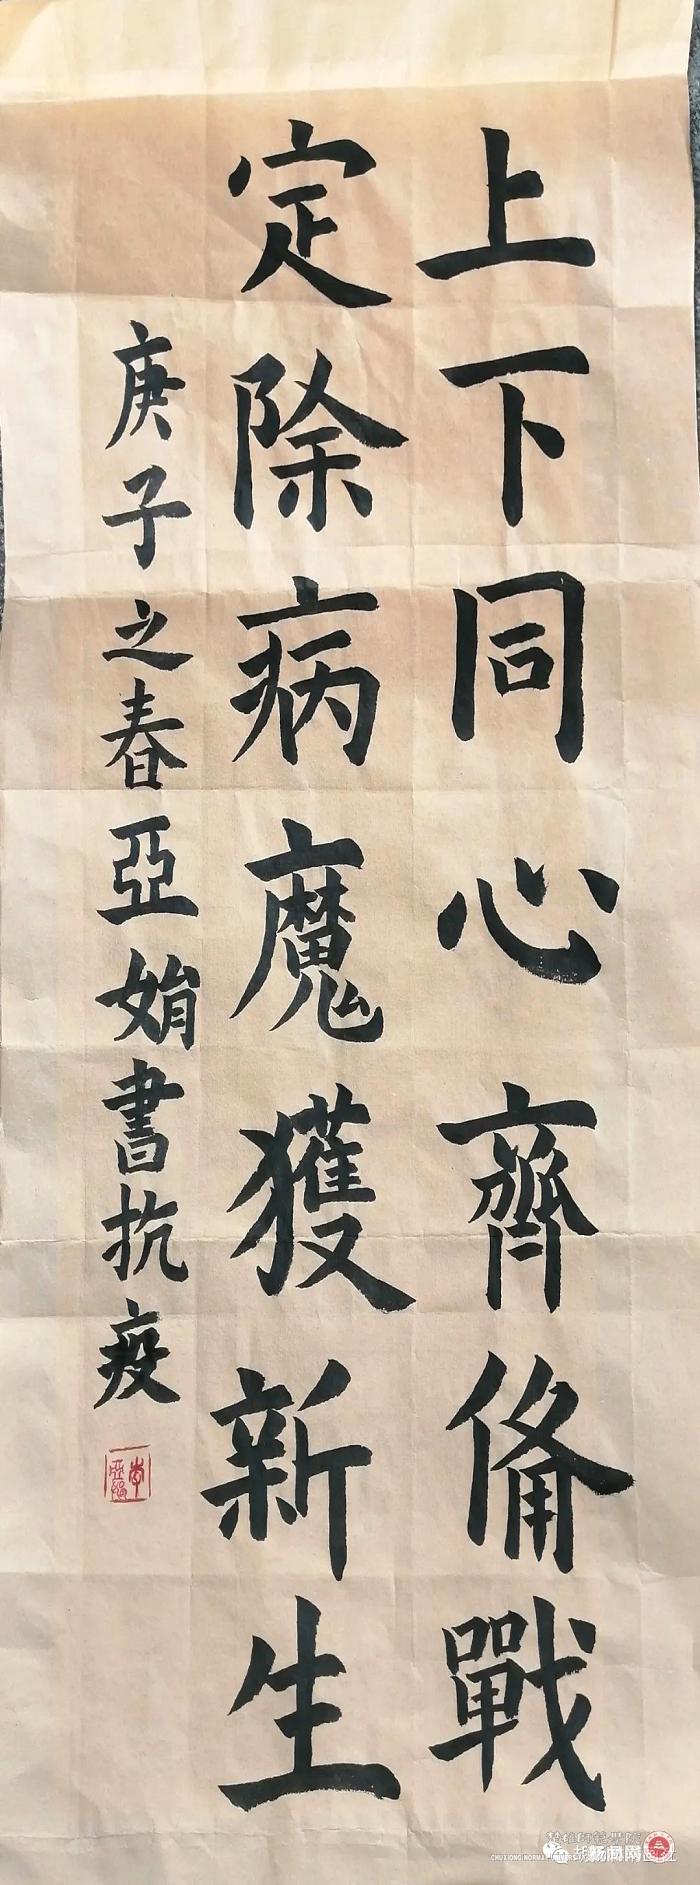 上下同心齊俻戰
定除病魔獲新生
庚子之春亞娟書抗疫
李亞娟
CHUXIONG NORMAL